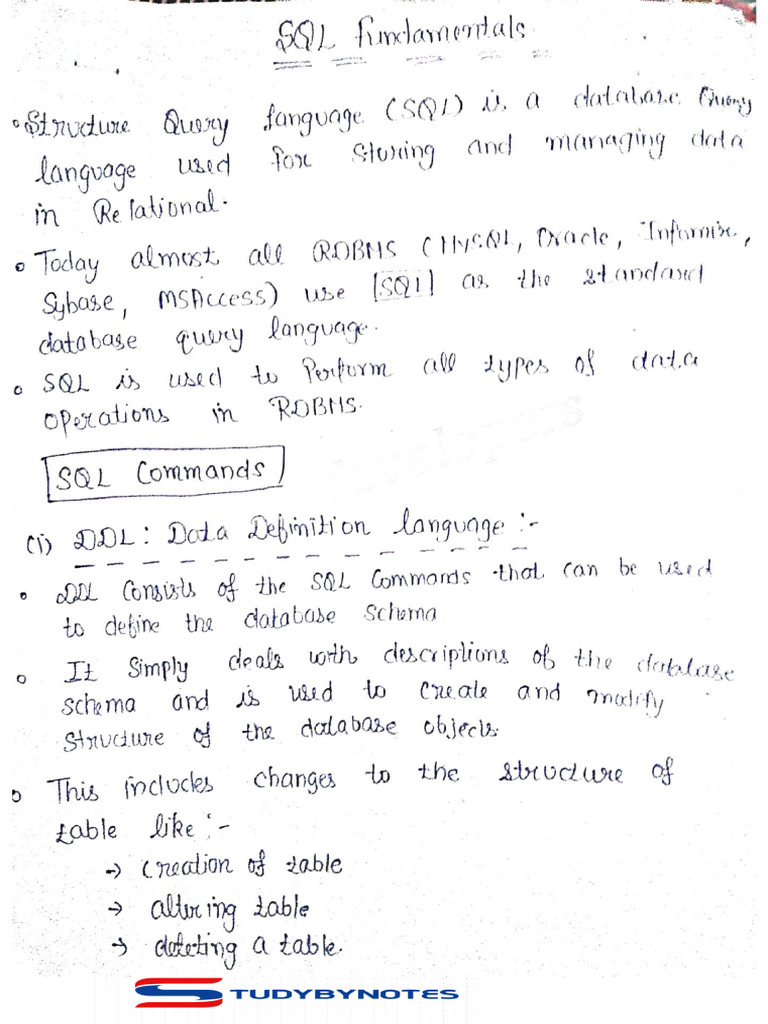 SQL Fundamentals
• Structure Query language (SQL) is a database Query
language used for storing and managing data
in Relational.
• Today almost all RDBMS (MySQL, Oracle, Informix,
Sybase, MSAccess) use [SQL] as the standard
database query language.
• SQL is used to Perform all types of data
operations in RDBMS.
SQL Commands
(i) DDL : Data Definition language :-
• DDL Consists of the SQL Commands that can be used
to define the database schema
• It simply deals with descriptions of the database
schema and is used to create and modify
structure of the database objects.
• This includes changes to the structure of
table like :-
→ creation of table
→ altering table
→ deleting a table.
STUDYBYNOTES